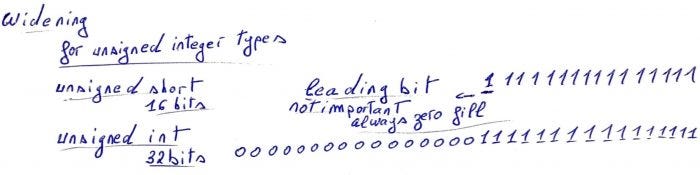 widening
for unsigned integer types
unsigned short
16 bits
leading bit ← 1 111111111111111
not important
always zero fill
unsigned int
32bits
00000000000000001111111111111111